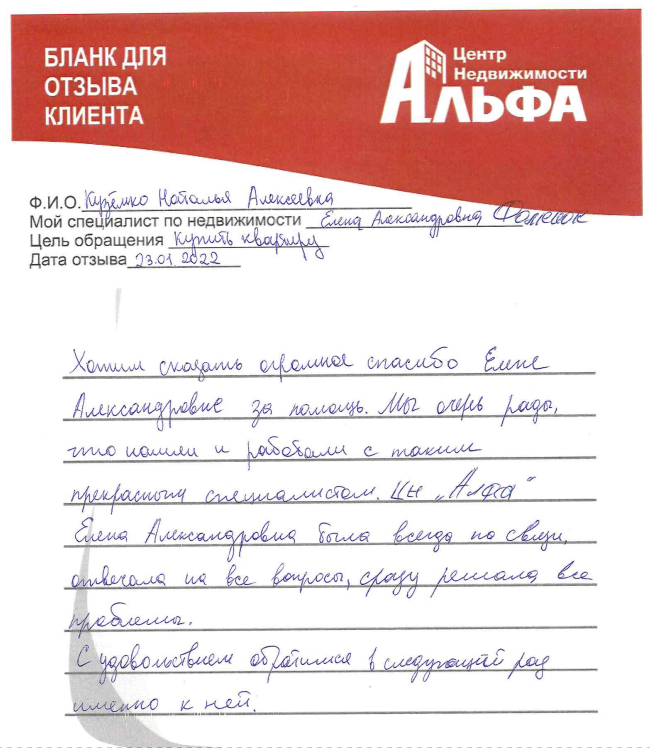 БЛАНК ДЛЯ
ОТЗЫВА
КЛИЕНТА
Центр
Недвижимости
АЛЬФА
Ф.И.О. Кузёмко Наталья Алексеевна
Мой специалист по недвижимости Елена Александровна
Цель обращения Купить квартиру
Дата отзыва 23.01.2022
Хотим сказать огромное спасибо Елене
Александровне за помощь. Мы очень рады,
что нашли и работали с таким
прекрасным специалистом. ЦН „Алфа"
Елена Александровна была всегда на связи,
отвечала на все вопросы, сразу решала все
проблемы.
С удовольствием обратимся в следующий раз
именно к ней.